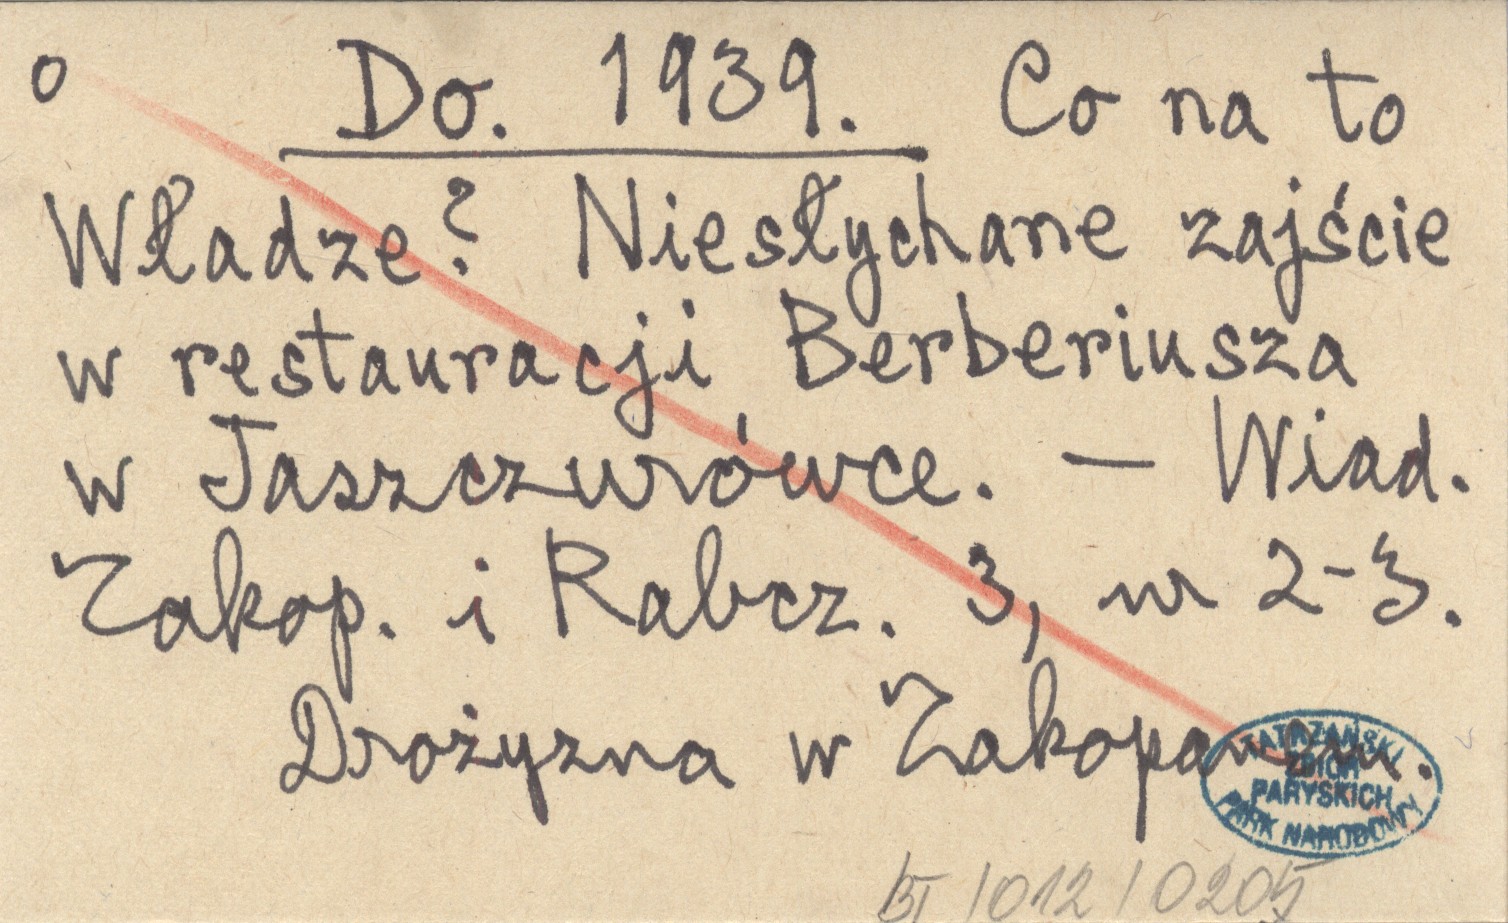 o Do. 1939. Co na to
Władze? Niesłychane zajście
w restauracji Berberiusza
w Jaszczurówce. — Wiad.
Zakop. i Rabcz. 3, nr 2-3.
Drożyzna w Zakopanem.
TATRZAŃSKI
ZBIÓR
PARYSKICH
PARK NARODOWY
/012/0205